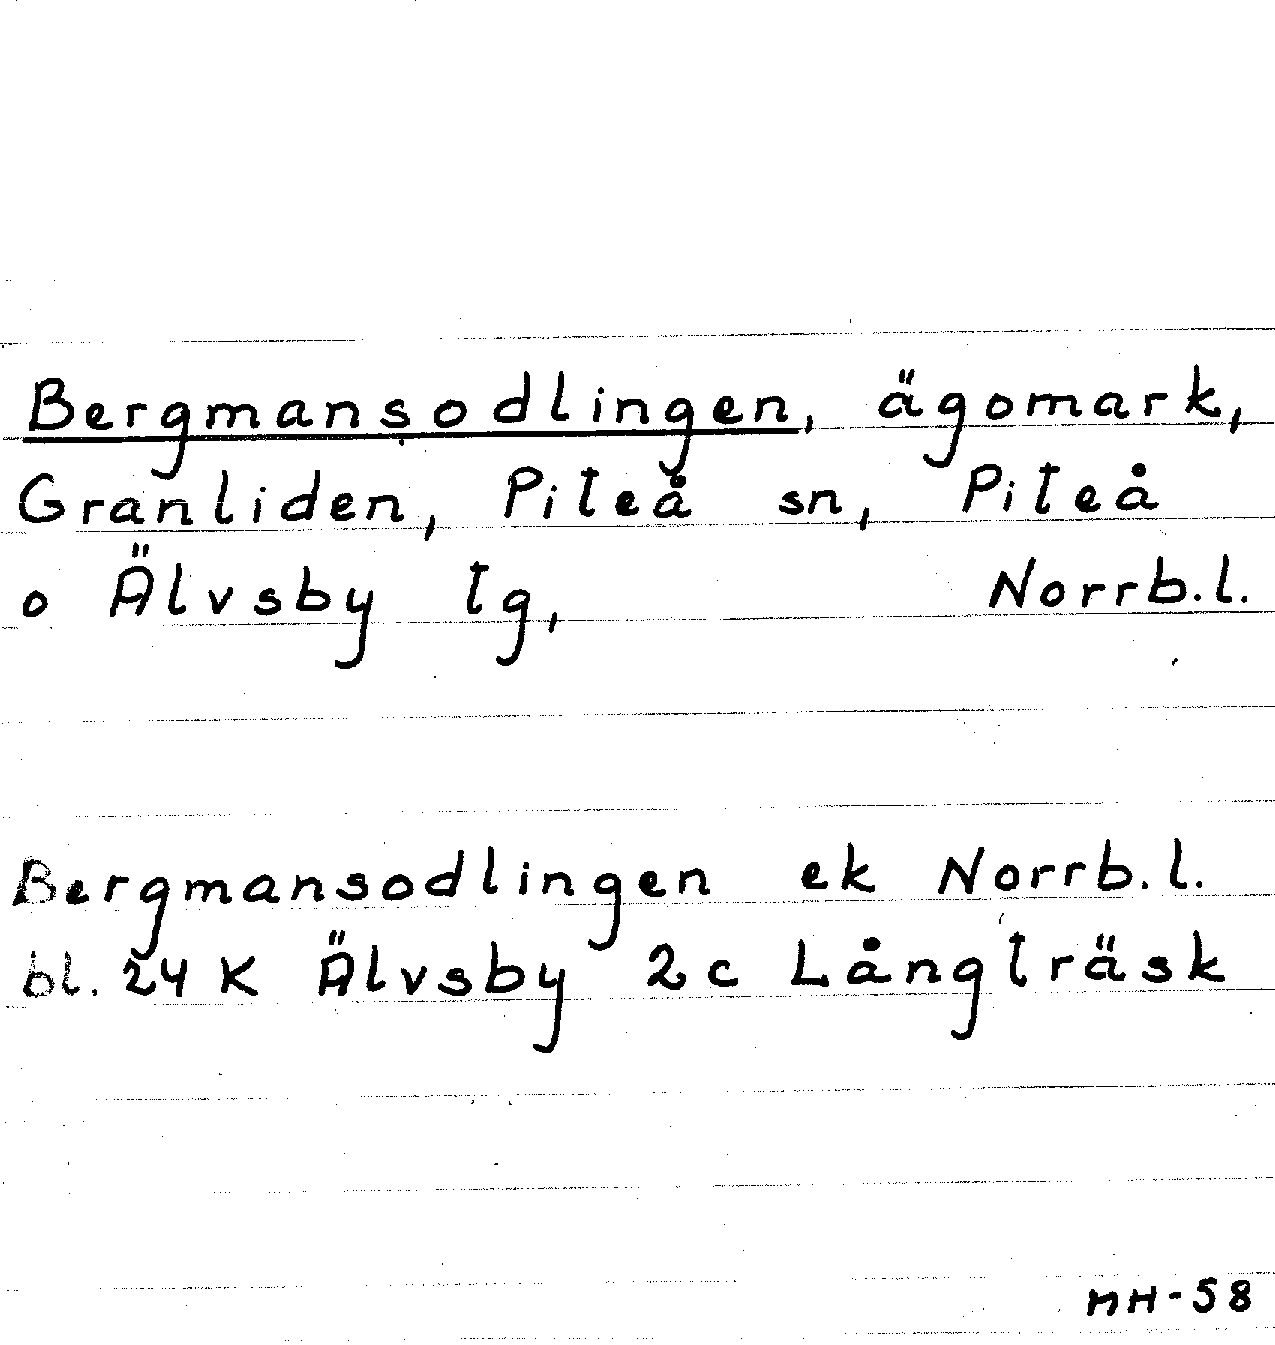 Bergmansodlingen, ägomark,
Granliden, Piteå sn, Piteå
o Älvsby tg, Norrb.l.
Bergmansodlingen ek Norrb.l.
bl. 24 K Älvsby 2 c Långträsk
MH-58